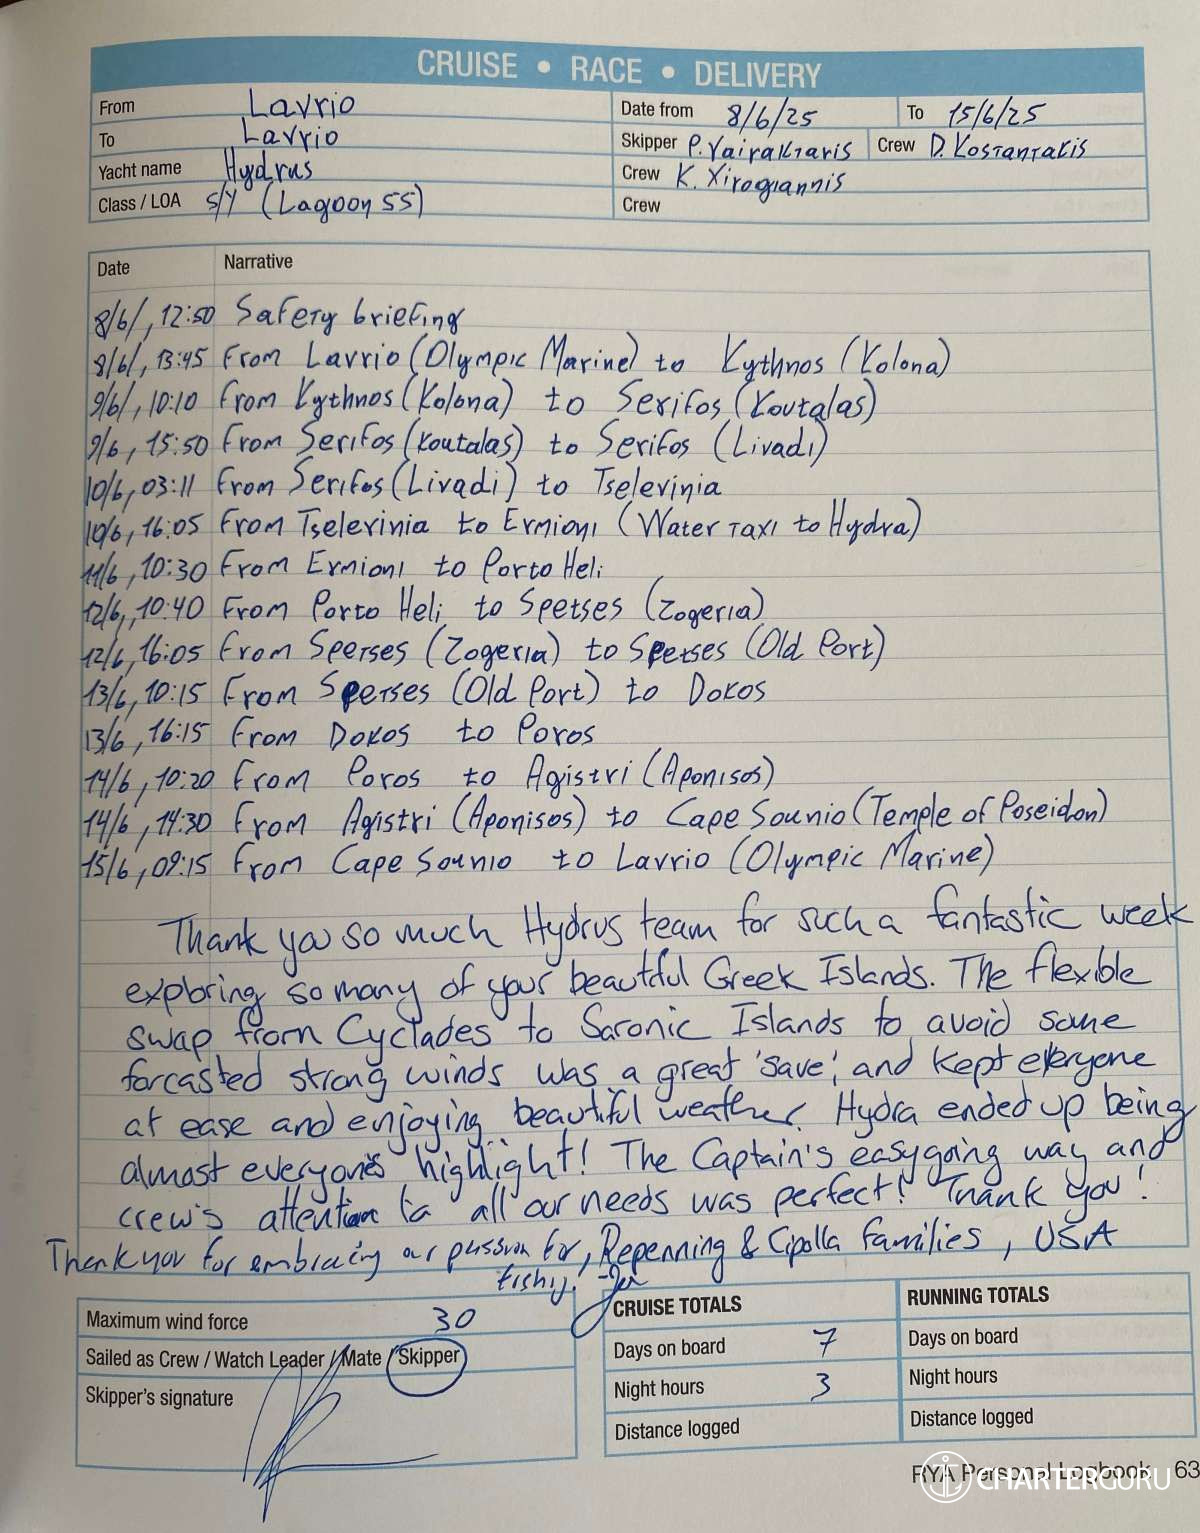 CRUISE • RACE • DELIVERY
From Lavrio Date from 8/6/25 To 15/6/25
To Lavrio Skipper P. Vairaktaris Crew D. Kostantakis
Yacht name Hydrus Crew K. Xirogiannis
Class / LOA S/Y (Lagoon 55) Crew
Date Narrative
8/6/, 12:50 Safety briefing
8/6/, 13:45 From Lavrio (Olympic Marine) to Kythnos (Kolona)
9/6/, 10:10 From Kythnos (Kolona) to Serifos (Koutalas)
9/6, 15:50 From Serifos (Koutalas) to Serifos (Livadi)
10/6, 03:11 From Serifos (Livadi) to Tselevinia
10/6, 16:05 From Tselevinia to Ermioni (Water taxi to Hydra)
11/6, 10:30 From Ermioni to Porto Heli
12/6, 10:40 From Porto Heli to Spetses (Zogeria)
12/6, 16:05 From Spetses (Zogeria) to Spetses (Old Port)
13/6, 10:15 From Spetses (Old Port) to Dokos
13/6, 16:15 From Dokos to Poros
14/6, 10:20 From Poros to Agistri (Aponisos)
14/6, 14:30 From Agistri (Aponisos) to Cape Sounio (Temple of Poseidon)
15/6, 09:15 From Cape Sounio to Lavrio (Olympic Marine)
Thank you so much Hydrus team for such a fantastic week
exploring so many of your beautiful Greek Islands. The flexible
swap from Cyclades to Saronic Islands to avoid some
forcasted strong winds was a great 'save', and kept everyone
at ease and enjoying beautiful weather. Hydra ended up being
almost everyone's highlight! The Captain's easygoing way and
crew's attention to all our needs was perfect! Thank you!
Thank you for embracing our passion for, Repenning & Cipolla families, USA
fishing! -Jen
Maximum wind force 30
Sailed as Crew / Watch Leader / Mate / Skipper
Skipper's signature
CRUISE TOTALS
Days on board 7
Night hours 3
Distance logged
RUNNING TOTALS
Days on board
Night hours
Distance logged
RYA Personal Logbook 63
CHARTERGURU